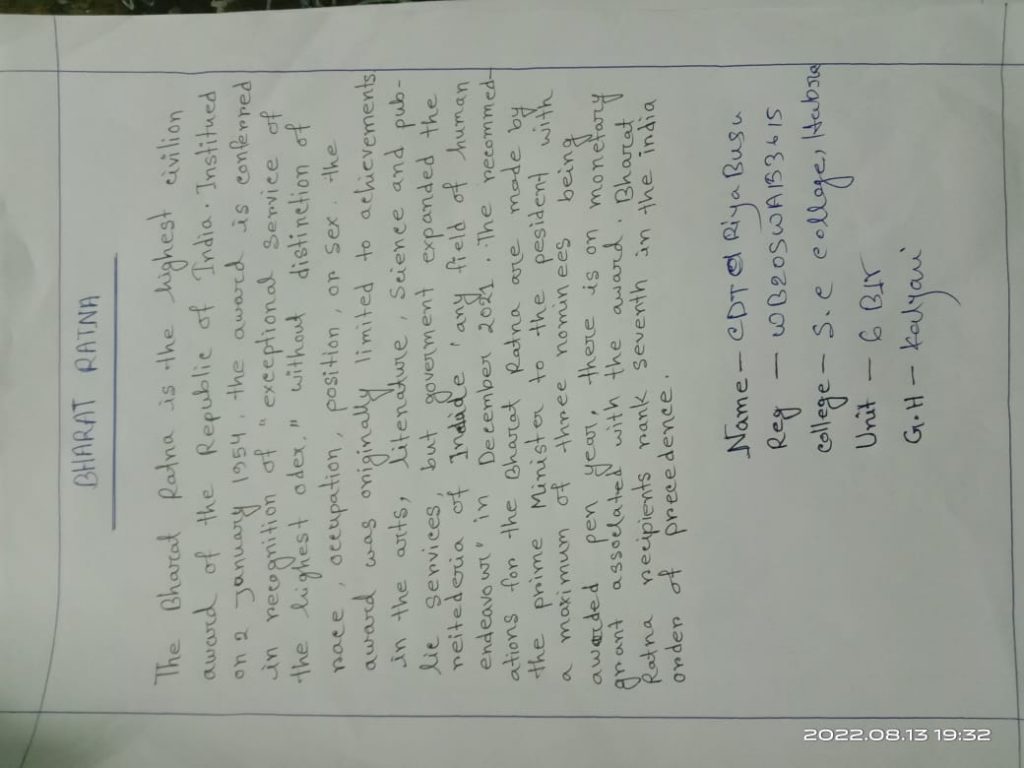 BHARAT RATNA
The Bharat Ratna is the highest civilion
award of the Republic of India. Institued
on 2 January 1954, the award is conferred
in recognition of "exceptional service of
the highest oder," without distinction of
race, occupation, position, or sex. the
award was originally limited to achievements
in the arts, literature, science and pub-
lic services, but goverment expanded the
reitederia of include "any field of human
endeavour" in December 2021. The recommed-
ations for the Bharat Ratna are made by
the prime Minister to the pesident with
a maximum of three nominees being
awarded per year, there is on monetary
grant assoclated with the award. Bharat
Ratna recipients rank seventh in the india
order of precedence.
Name - CDT Riya Basu
Reg - WB20SWAB33615
college - S.C college, Habra
Unit - 6 BN
G.H - Kalyani
2022.08.13 19:32